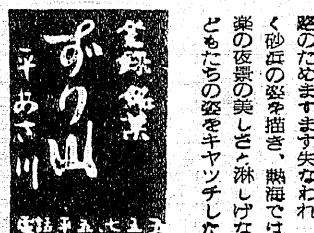 路のためますます失なわれ
く砂浜の姿を描き、熱海では
楽の夜景の美しさと淋しげな
どもたちの姿をキヤツチした
登録 銘菓
ずり山
平 あさ川